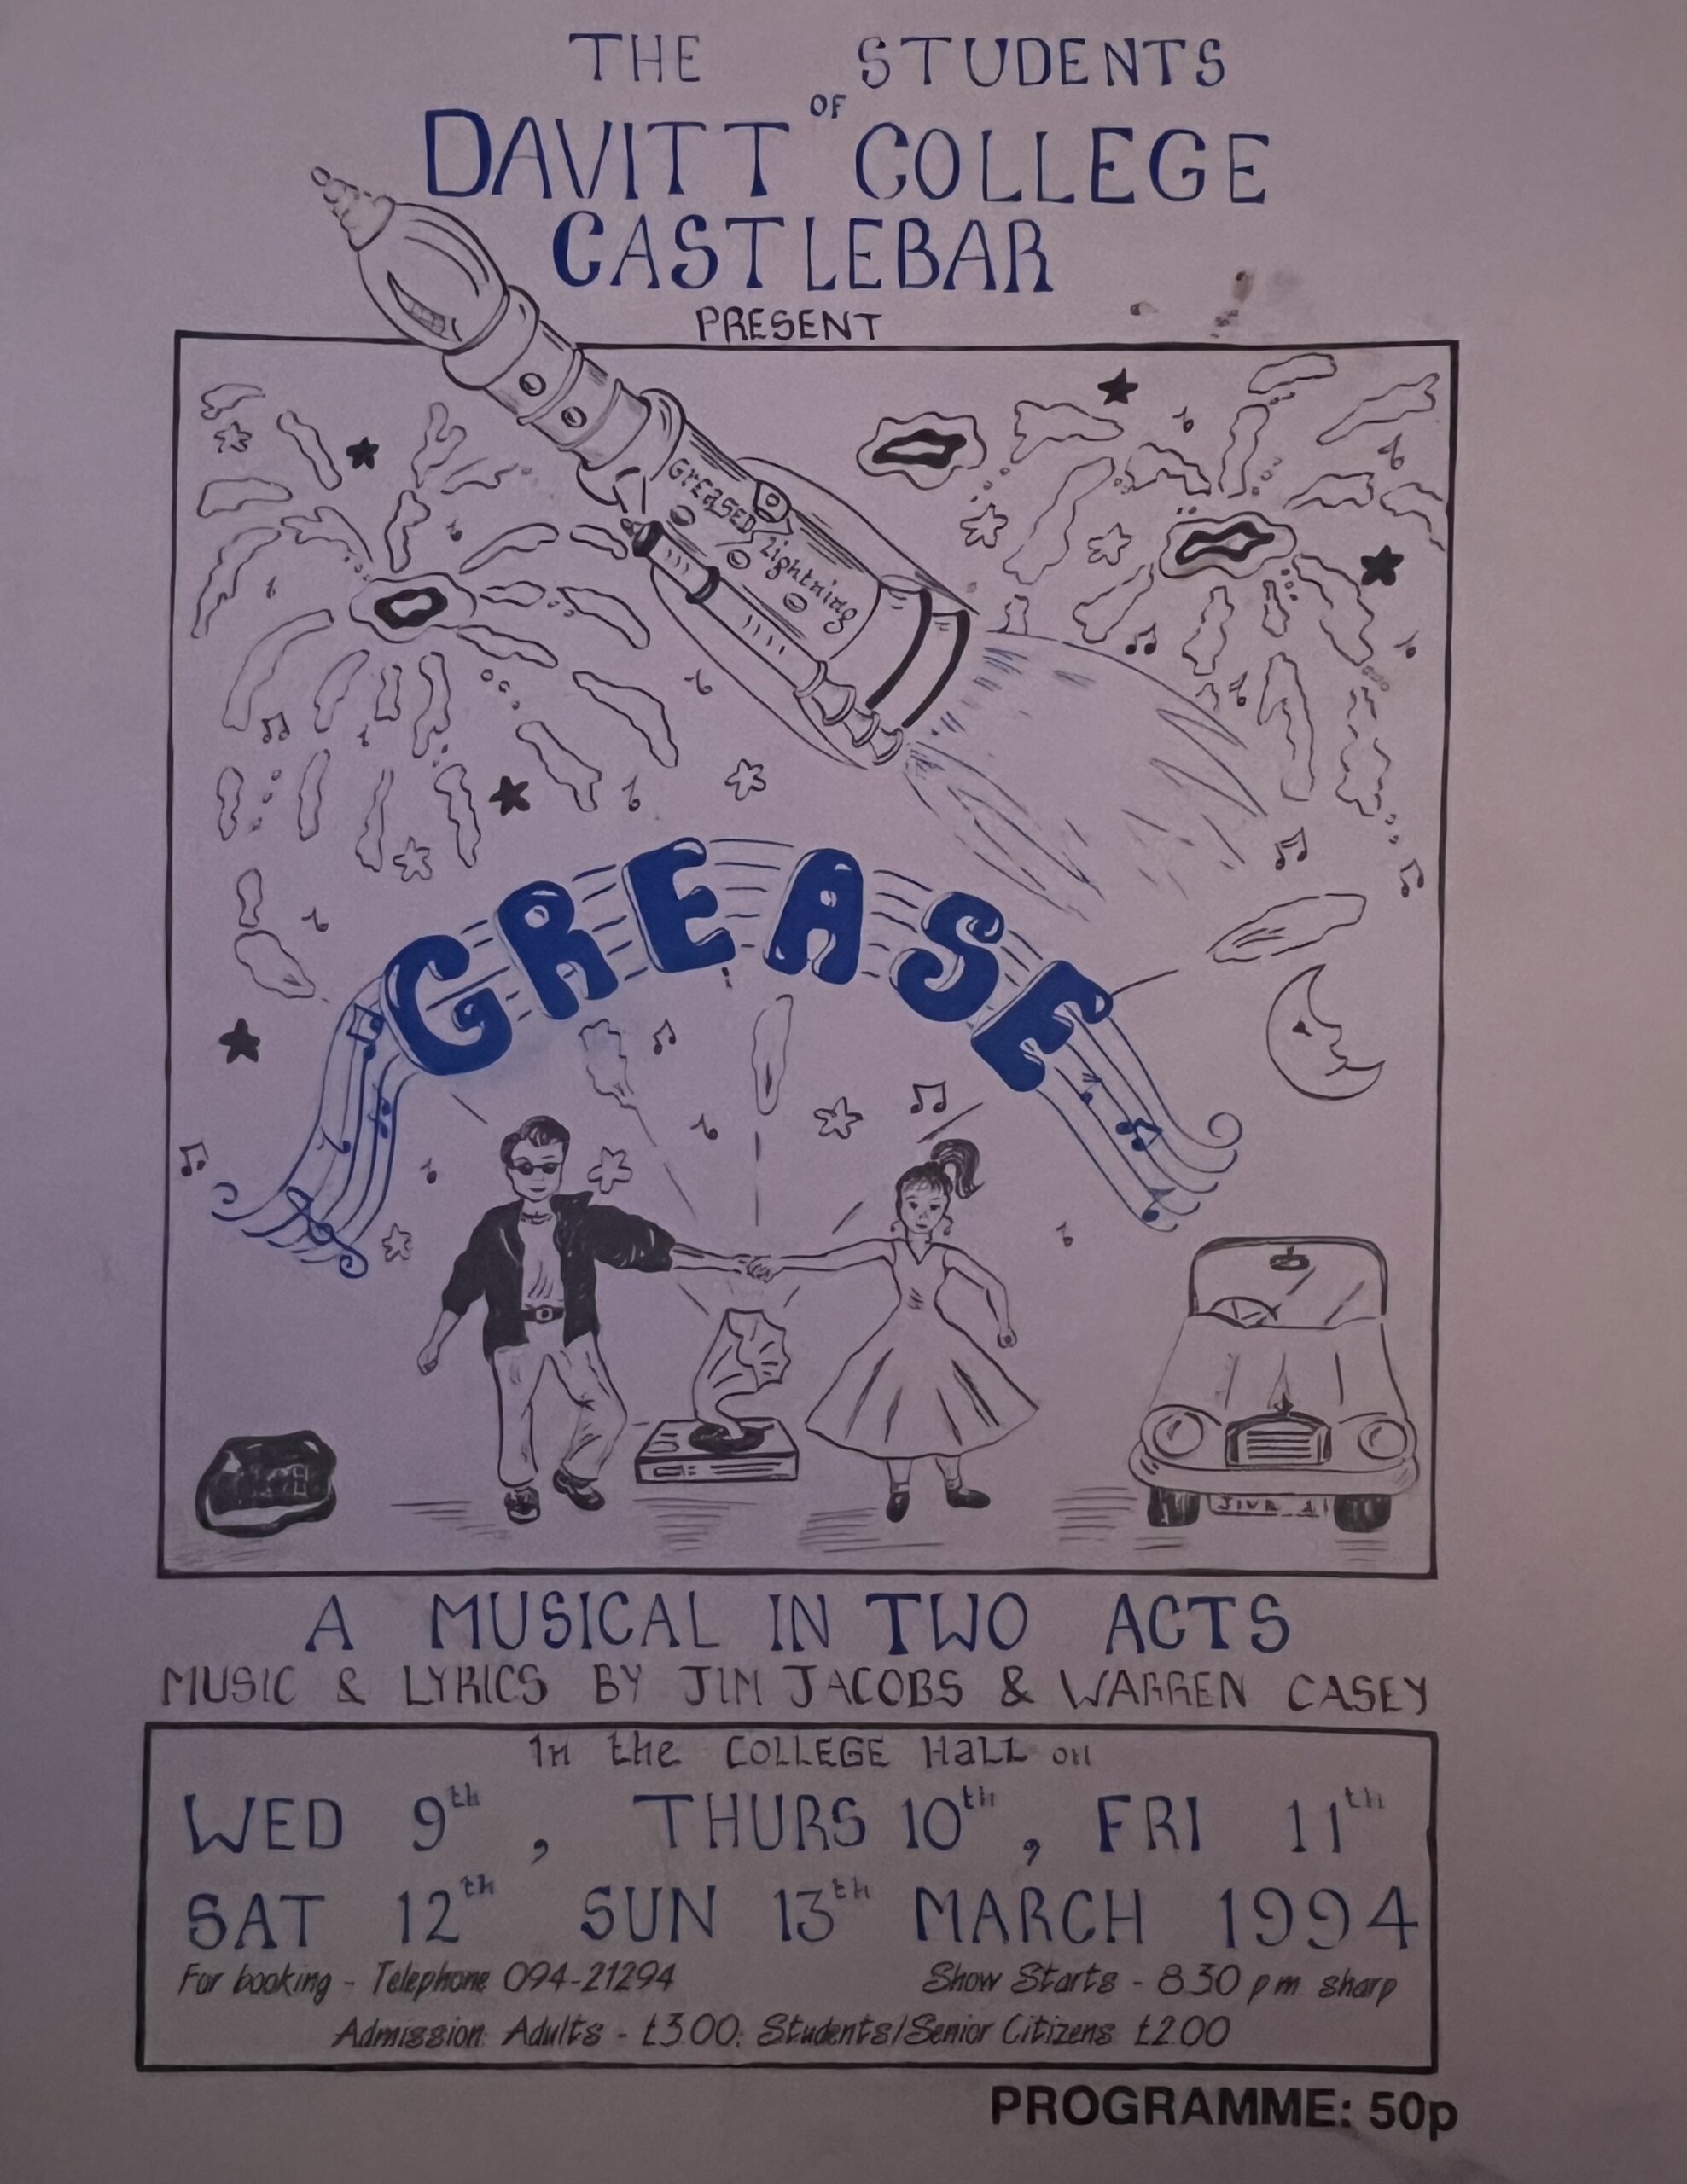 THE STUDENTS
OF
DAVITT COLLEGE
CASTLEBAR
PRESENT
GREASED Lightning
GREASE
JIVE 1
A MUSICAL IN TWO ACTS
MUSIC & LYRICS BY JIM JACOBS & WARREN CASEY
In the COLLEGE HaLL on
WED 9th, THURS 10th, FRI 11th
SAT 12th SUN 13th MARCH 1994
For booking - Telephone 094-21294 Show Starts - 8.30 pm sharp
Admission: Adults - £3.00; Students/Senior Citizens £2.00
PROGRAMME: 50p